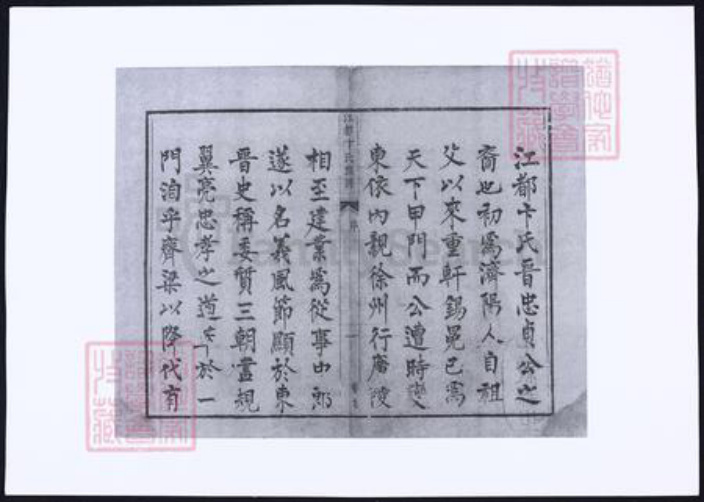 江都卞氏晋忠貞公之
裔也初爲濟陽人自祖
父以來重軒錫冕已爲
天下甲門而公遭時變
東依內親徐州行廣陵
江都卞氏族譜
序
一
相至建業爲從事中郎
遂以名義風節顯於東
晋史稱委質三朝盡規
翼亮忠孝之道萃於一
門洎乎齊梁以降代有
FamilySearch